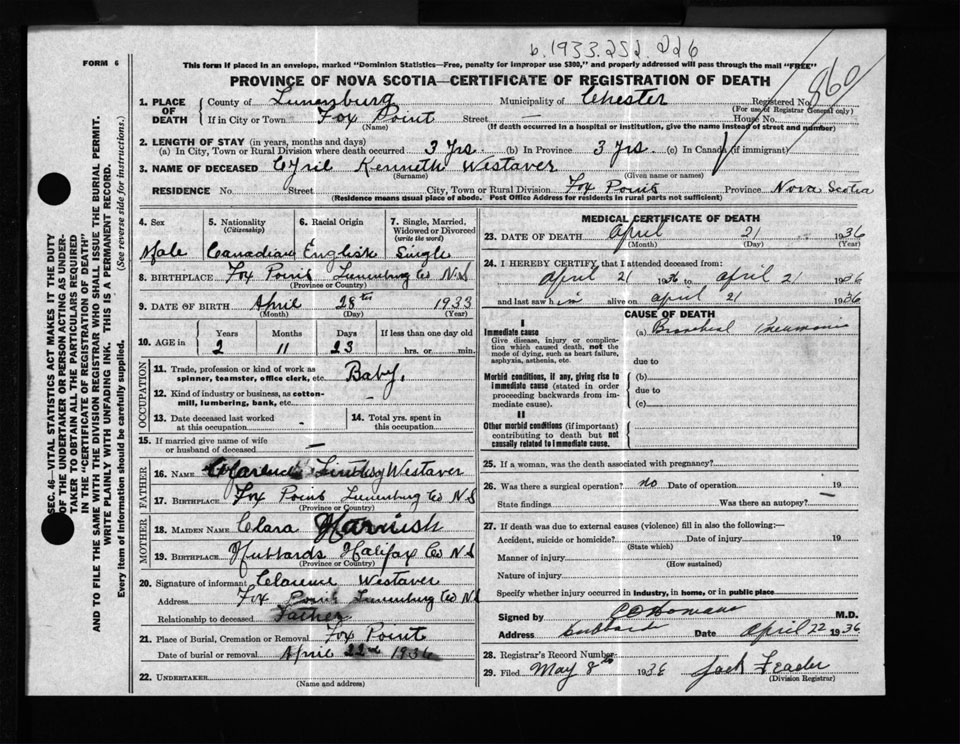 b. 1933.252.226
FORM 6
This form if placed in an envelope, marked "Dominion Statistics—Free, penalty for improper use $300," and properly addressed will pass through the mail "FREE"
PROVINCE OF NOVA SCOTIA—CERTIFICATE OF REGISTRATION OF DEATH
860
1. PLACE OF DEATH
County of Lunenburg Municipality of Chester Registered No.
(For use of Registrar General only)
If in City or Town Fox Point Street — House No.
(Name) (If death occurred in a hospital or institution, give the name instead of street and number)
2. LENGTH OF STAY (in years, months and days)
(a) In City, Town or Rural Division where death occurred 3 yrs. (b) In Province 3 yrs. (c) In Canada (if immigrant)
3. NAME OF DECEASED Cyril Kenneth Westaver
(Surname) (Given name or names)
RESIDENCE No. Street City, Town or Rural Division Fox Point Province Nova Scotia
(Residence means usual place of abode. Post Office Address for residents in rural parts not sufficient)
4. Sex 5. Nationality (Citizenship) 6. Racial Origin 7. Single, Married, Widowed or Divorced (write the word)
Male Canadian English Single
8. BIRTHPLACE Fox Point Lunenburg Co N.S
(Province or Country)
9. DATE OF BIRTH April 28th 1933
(Month) (Day) (Year)
10. AGE in Years Months Days If less than one day old
2 11 23 hrs. or min.
OCCUPATION
11. Trade, profession or kind of work as spinner, teamster, office clerk, etc. Baby.
12. Kind of industry or business, as cotton-mill, lumbering, bank, etc.
13. Date deceased last worked at this occupation 14. Total yrs. spent in this occupation
15. If married give name of wife or husband of deceased —
FATHER
16. NAME Clarence Lindsay Westaver
17. BIRTHPLACE Fox Point Lunenburg Co N.S
(Province or Country)
MOTHER
18. MAIDEN NAME Clara Harnish
19. BIRTHPLACE Hubbards Halifax Co N.S
(Province or Country)
20. Signature of informant Clarence Westaver
Address Fox Point Lunenburg Co N.S
Relationship to deceased Father
21. Place of Burial, Cremation or Removal Fox Point
Date of burial or removal April 22nd 1936
22. UNDERTAKER
(Name and address)
MEDICAL CERTIFICATE OF DEATH
23. DATE OF DEATH April 21 1936
(Month) (Day) (Year)
24. I HEREBY CERTIFY, that I attended deceased from:
April 21 1936 to April 21 1936
and last saw him alive on April 21 1936
CAUSE OF DEATH
I
Immediate cause (a) Bronchial Pneumonia
Give disease, injury or complication which caused death, not the mode of dying, such as heart failure, asphyxia, asthenia, etc.
due to
Morbid conditions, if any, giving rise to immediate cause (stated in order proceeding backwards from immediate cause).
(b)
due to
(c)
II
Other morbid conditions (if important) contributing to death but not causally related to immediate cause.
25. If a woman, was the death associated with pregnancy?
26. Was there a surgical operation? no Date of operation 19
State findings Was there an autopsy? —
27. If death was due to external causes (violence) fill in also the following:—
Accident, suicide or homicide? Date of injury 19
(State which)
Manner of injury
(How sustained)
Nature of injury
Specify whether injury occurred in industry, in home, or in public place
Signed by M.D.
Address Hubbards Date April 22 1936
28. Registrar's Record Number
29. Filed May 8th 1936 Jack Feader
(Division Registrar)
SEC. 46—VITAL STATISTICS ACT MAKES IT THE DUTY
OF THE UNDERTAKER OR PERSON ACTING AS UNDER-
TAKER TO OBTAIN ALL THE PARTICULARS REQUIRED
IN THE "CERTIFICATE OF REGISTRATION OF DEATH"
AND TO FILE THE SAME WITH THE DIVISION REGISTRAR WHO SHALL ISSUE THE BURIAL PERMIT.
WRITE PLAINLY WITH UNFADING INK. THIS IS A PERMANENT RECORD.
Every item of information should be carefully supplied. (See reverse side for instructions.)